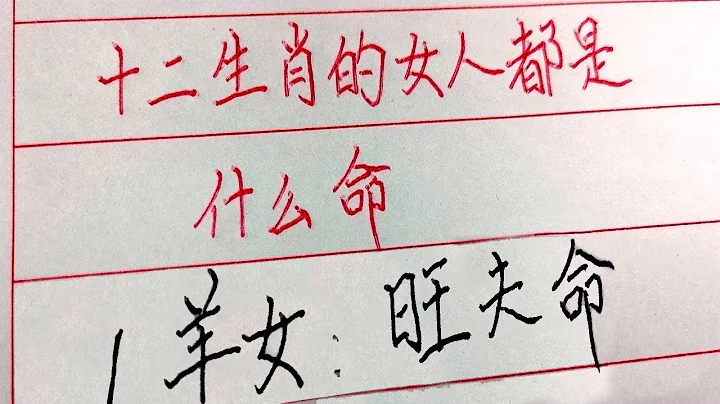 十二生肖的女人都是
什么命
1 羊女：旺夫命